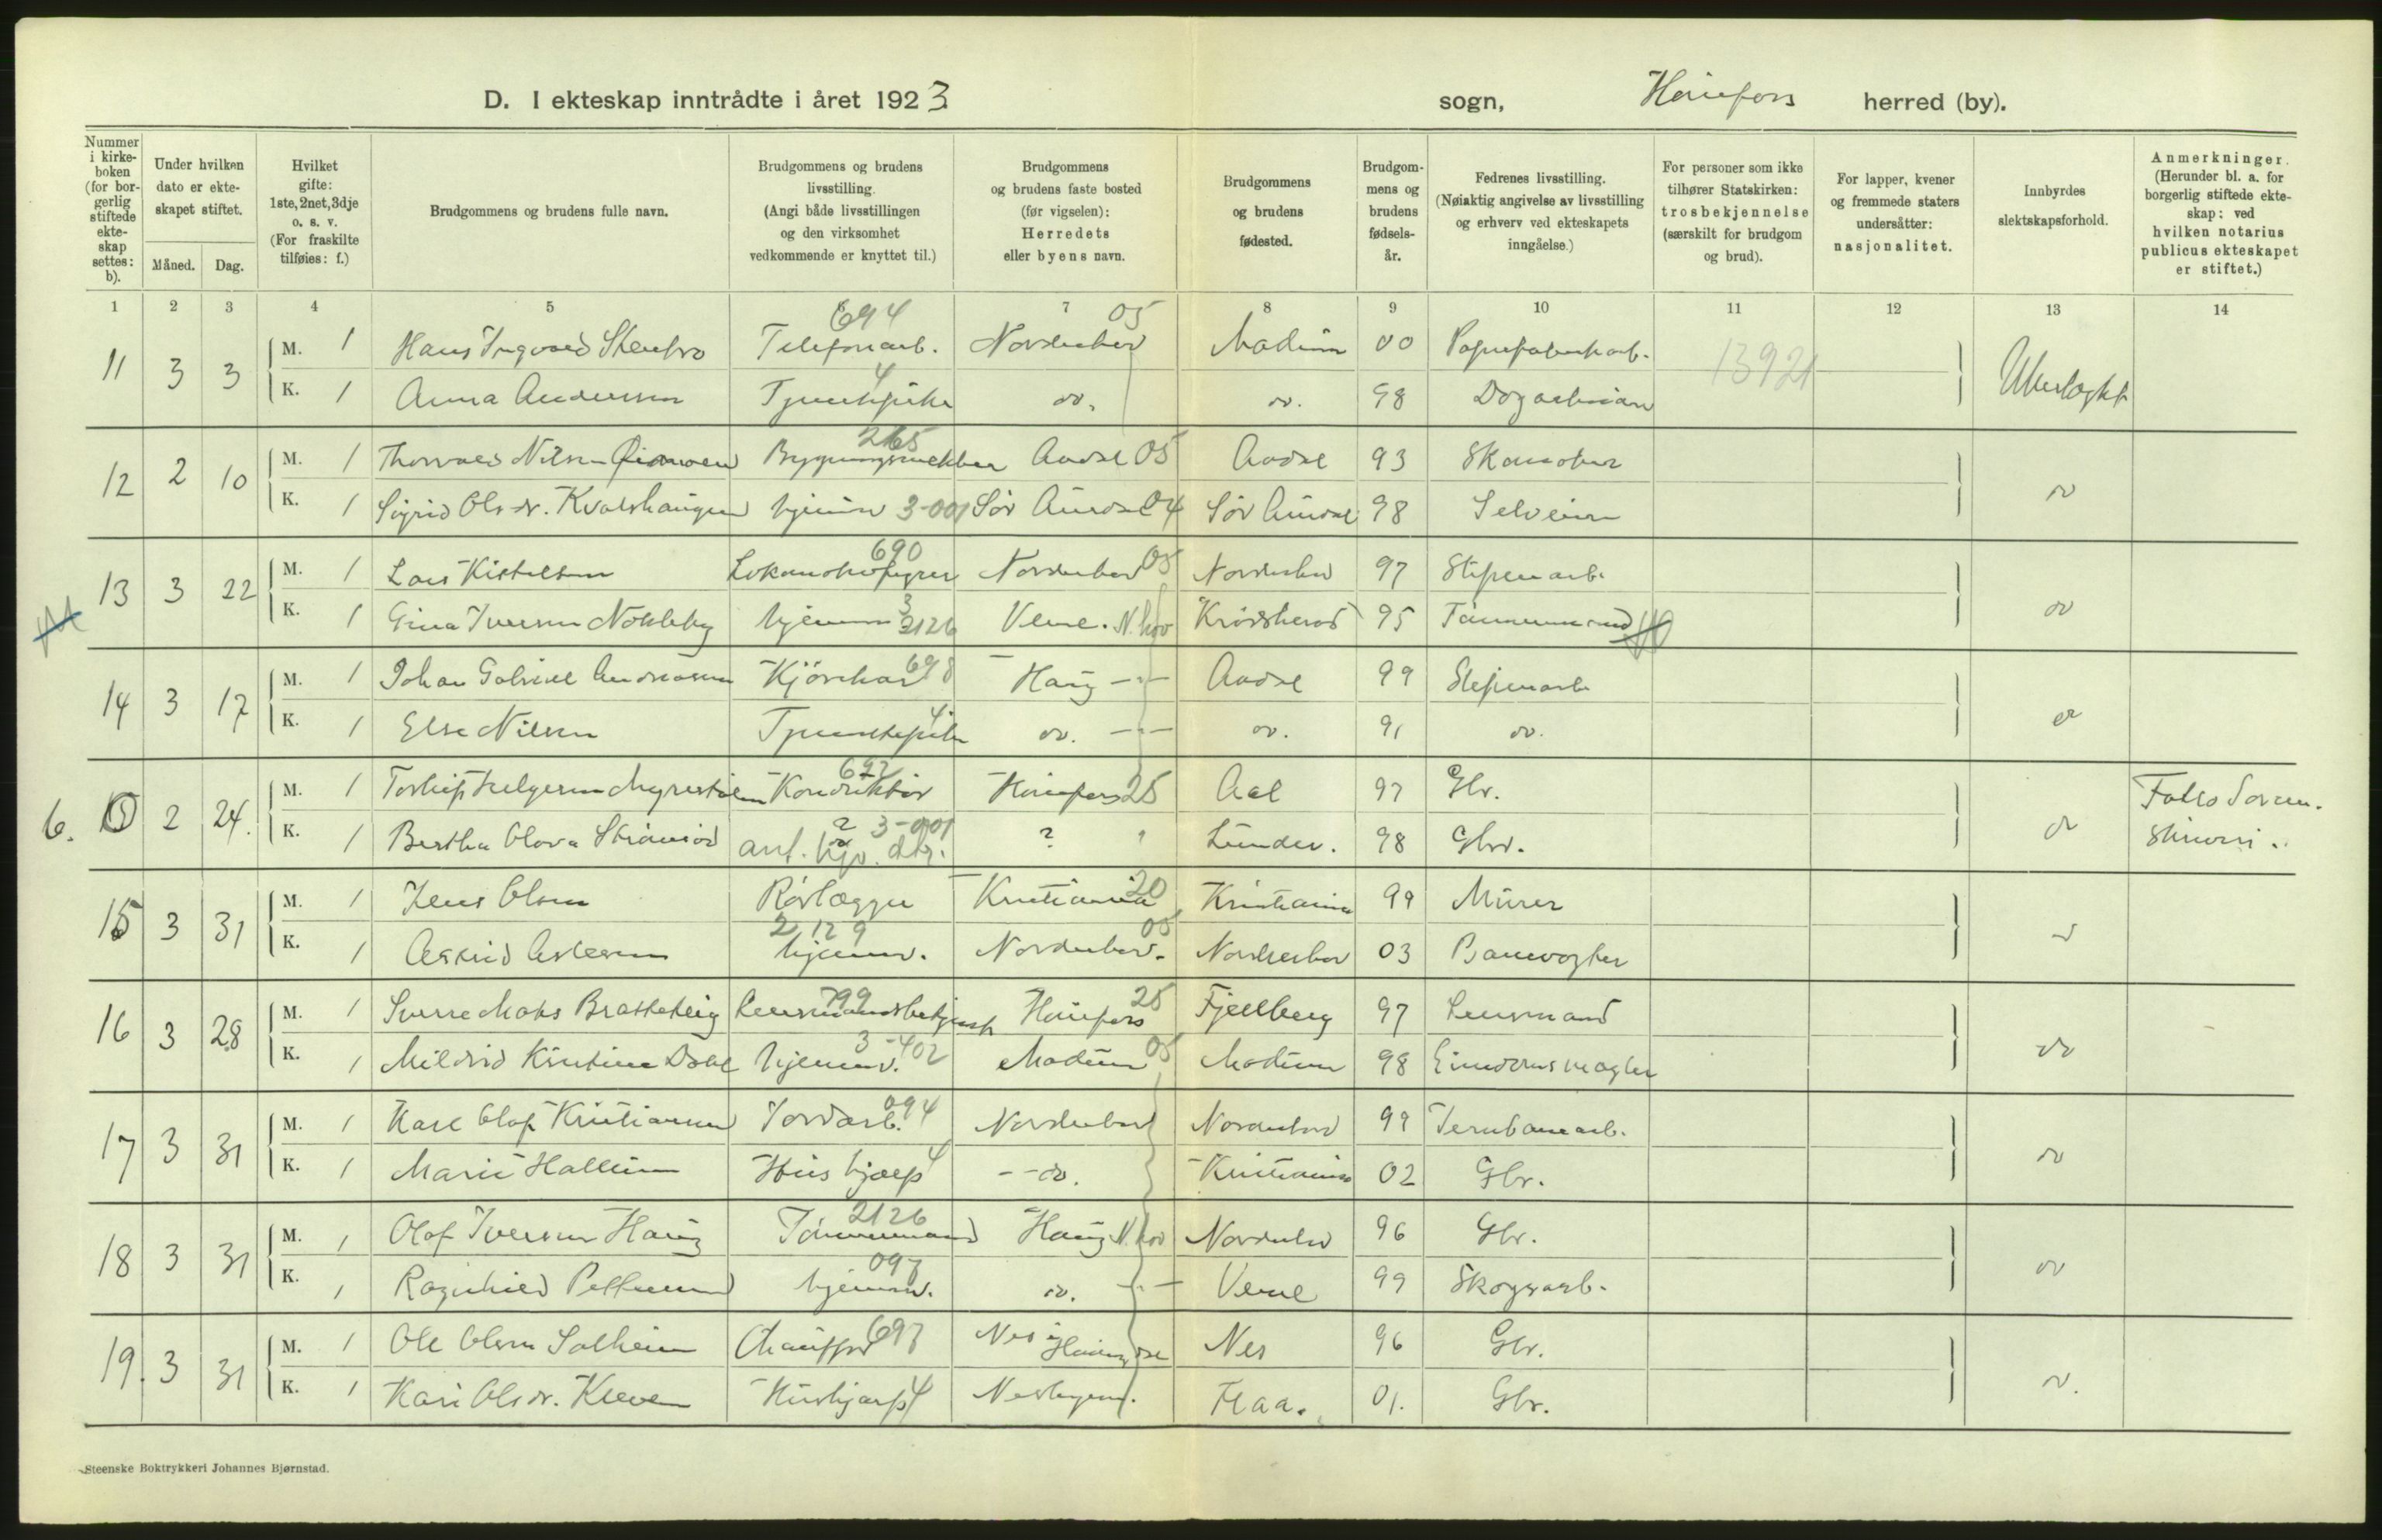 D. I ekteskap inntrådte i året 1923 sogn, Hønefoss herred (by).
Nummer i kirkeboken (for borgerlig stiftede ekteskap settes: b).
Under hvilken dato er ekteskapet stiftet.
Måned. Dag.
Hvilket gifte: 1ste, 2net, 3dje o. s. v. (For fraskilte tilføies: f.)
Brudgommens og brudens fulle navn.
Brudgommens og brudens livsstilling. (Angi både livsstillingen og den virksomhet vedkommende er knyttet til.)
Brudgommens og brudens faste bosted (før vigselen): Herredets eller byens navn.
Brudgommens og brudens fødested.
Brudgommens og brudens fødselsår.
Fedrenes livsstilling. (Nøiaktig angivelse av livsstilling og erhverv ved ekteskapets inngåelse.)
For personer som ikke tilhører Statskirken: trosbekjennelse (særskilt for brudgom og brud).
For lapper, kvener og fremmede staters undersåtter: nasjonalitet.
Innbyrdes slektskapsforhold.
Anmerkninger. (Herunder bl. a. for borgerlig stiftede ekteskap: ved hvilken notarius publicus ekteskapet er stiftet.)
1 2 3 4 5 6 7 8 9 10 11 12 13 14
694 05
11 3 3 M. 1 Hans Ingvald Telefonarb. Norderhov Modum 00 13921
K. 1 Anna Andersen Tjenestepike 4 do. do. 98 Dagarbeider Ubeslægtet
265
12 2 10 M. 1 Thorvald Nilsen Bygningssnekker Aadal 05 Aadal 93 Skomaker
K. 1 Sigrid Olsdr. Kvalshaugen hjemme 3-001 Sør Aurdal 04 Sør Aurdal 98 Selveier do
690
13 3 22 M. 1 Lars Kistelsen Lokomotivfyrer Norderhov 05 Norderhov 97 Sliperiarb.
K. 1 Gina Iversen Nokleby hjemme 3 2126 Veme. N.hov Krødsherad 95 Tømmermand do
14 3 17 M. 1 Johan Gabriel Andreasen Kjørekar 698 Haug Aadal 99 Sliperiarb
K. 1 Else Nilsen Tjenestepike 4 do. do. 91 do. do
692
6. 15 2 24. M. 1 Konduktør Hønefoss 25 Aal 97 Gbr.
K. 1 Bertha Olava ant. hjv. dtr. 2 3-001 ? Lunder. 98 Gbr. do
15 3 31 M. 1 Jens Olsen Rørlægger Kristiania 20 Kristiania 99 Murer
K. 1 Astrid Aslesen 2129 hjemmv. Norderhov. 05 Norderhov 03 Banevogter do
16 3 28 M. 1 Sverre Maks Bratteteig Lensmandsbetjent 799 Hønefoss 25 Fjelberg 97 Lensmand
K. 1 Mildrid Kristine Dahl hjemmv. 3-402 Modum 05 Modum 98 Eiendomsmægler do
17 3 31 M. 1 Karl Olaf Kristiansen Jordarb. 094 Norderhov Norderhov 99 Jernbanearb.
K. 1 Marie Hallum Hushjælp 4 do. Kristiania 02 Gbr. do
18 3 31 M. 1 Olaf Iversen Haug Tømmermand 2126 Haug N.hov Norderhov 96 Gbr.
K. 1 Ragnhild Pettersen hjemmv. 097 do. Veme 99 Skogsarb. do
19. 3 31 M. 1 Ole Olsen Solheim Chauffør 697 Nes i Hallingdal Nes 96 Gbr.
K. 1 Kari Olsdr. Kleven Hushjælp 4 Nesbyen. Flaa. 01. Gbr. do.
Steenske Boktrykkeri Johannes Bjørnstad.